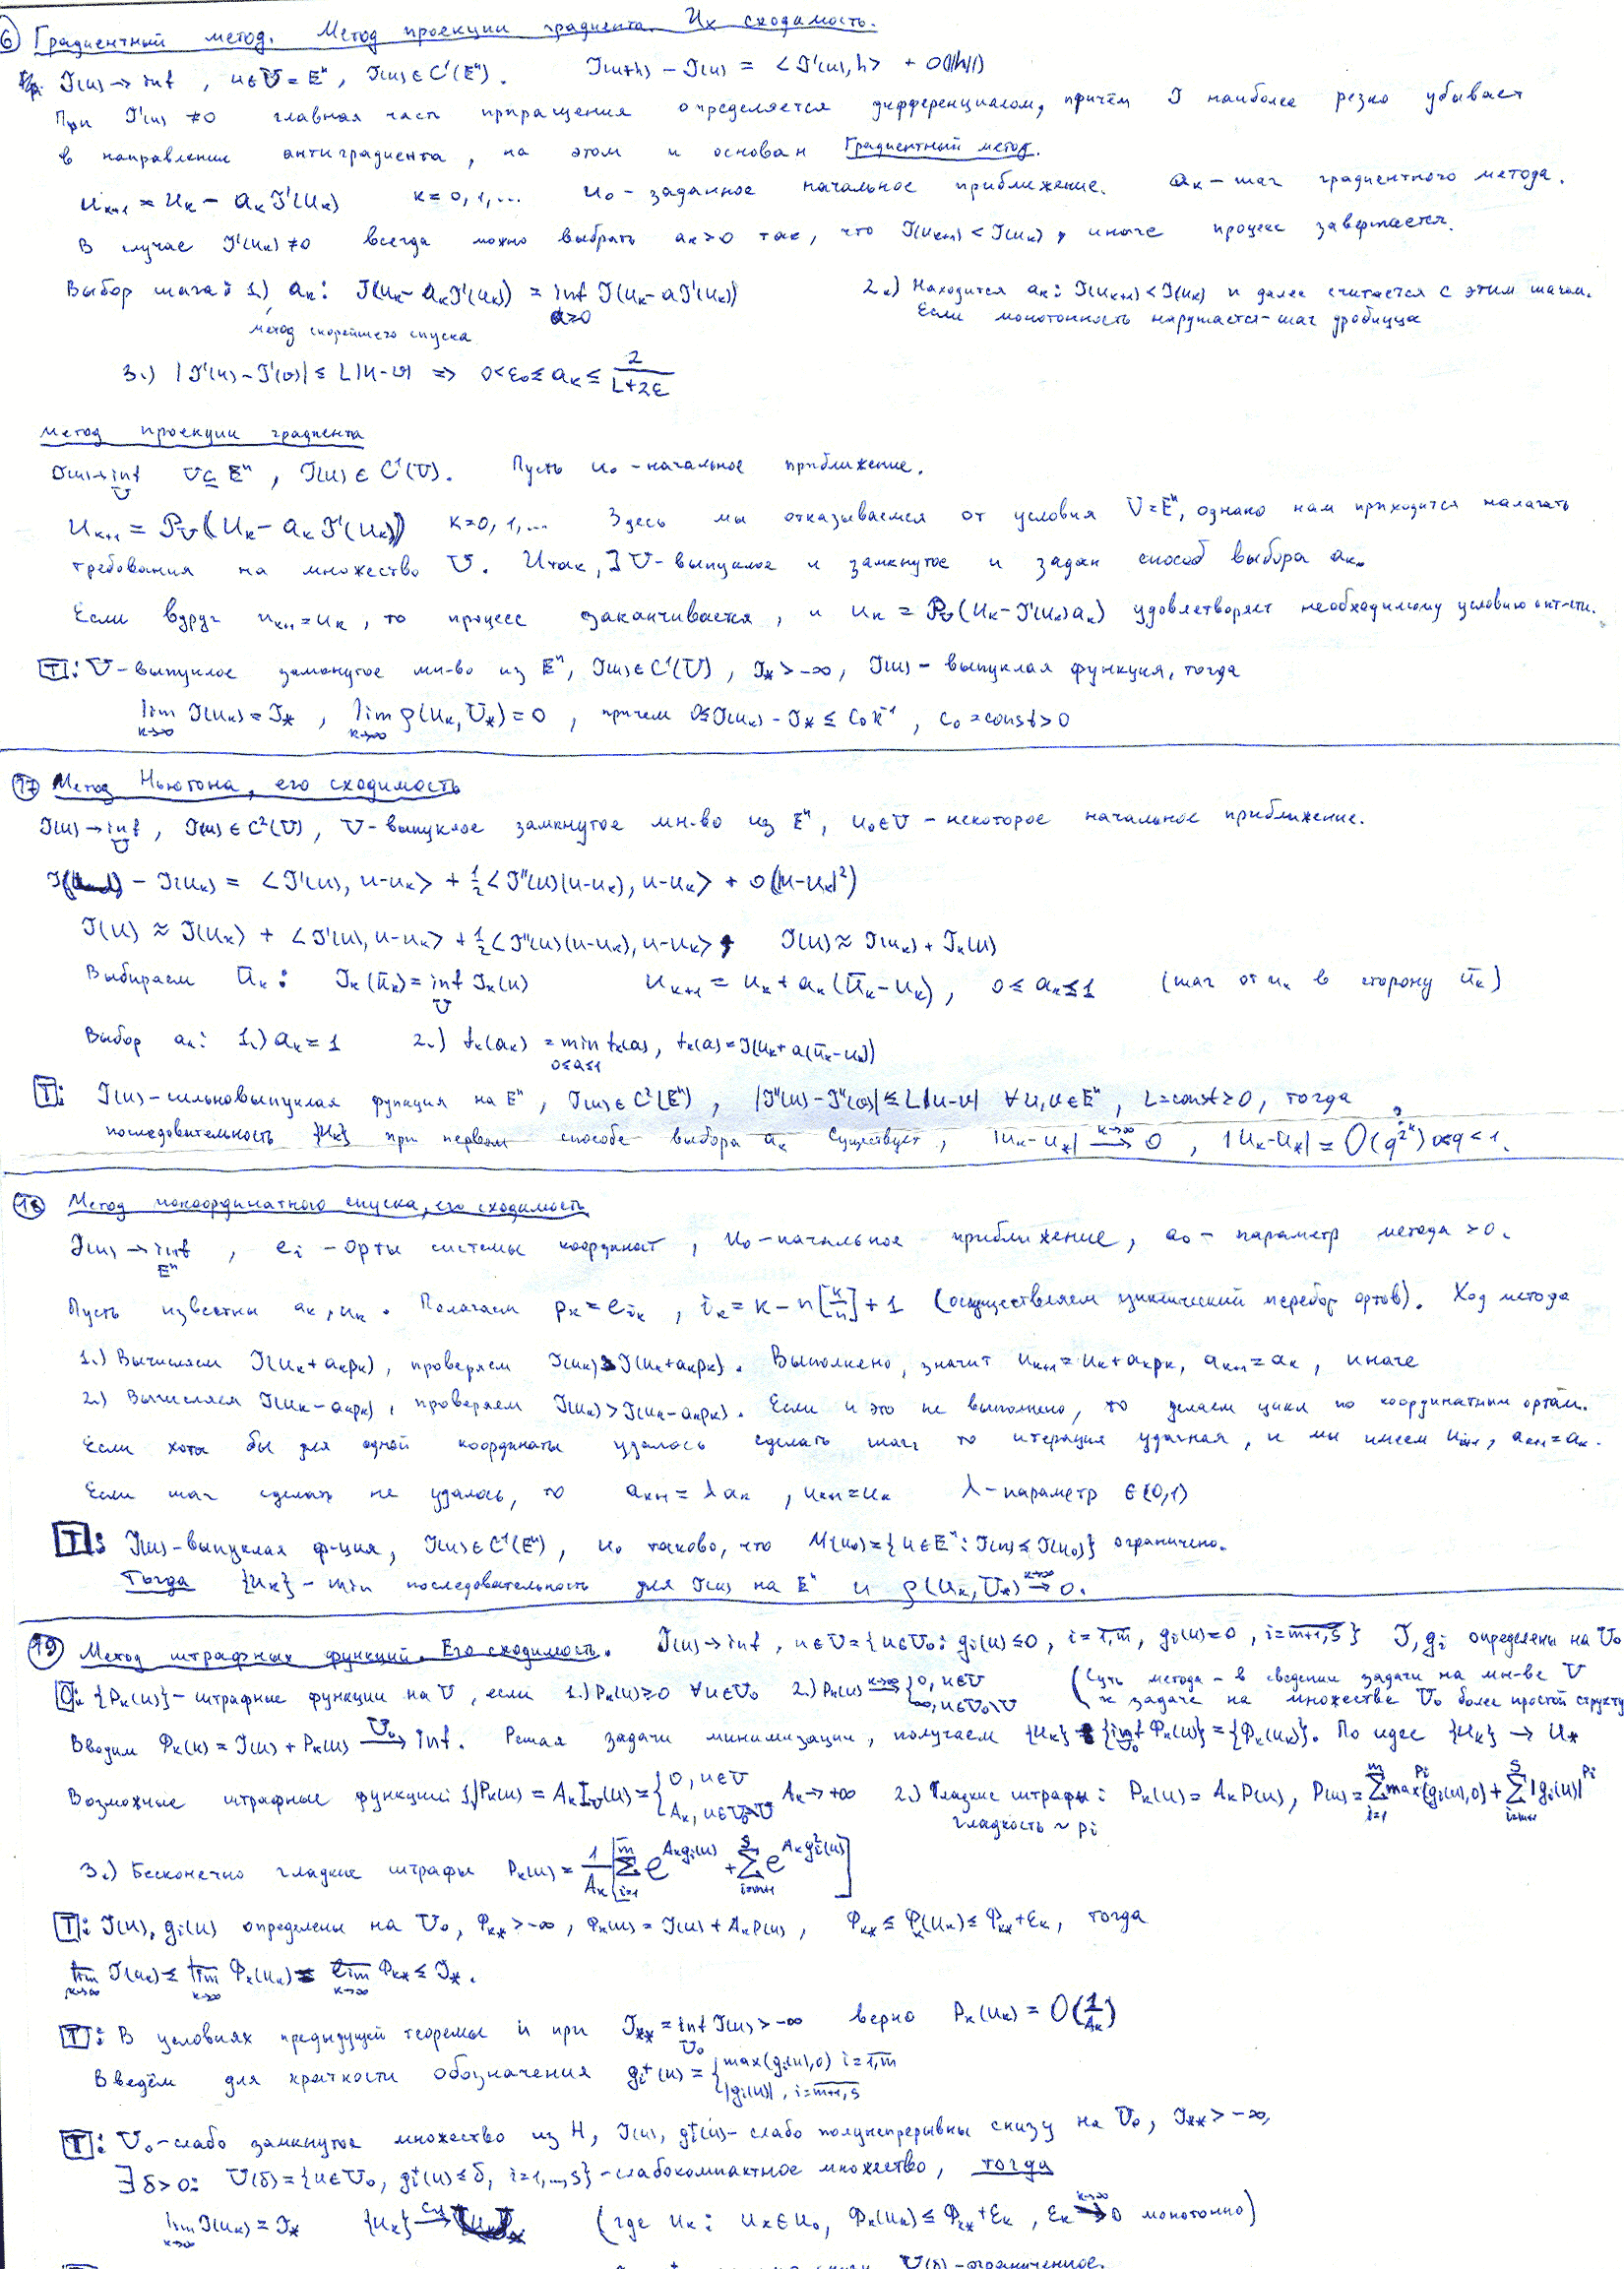 6) Градиентный метод. Метод проекции градиента. Их сходимость.
J(u) → inf, u∈U = Eⁿ, J(u)∈C¹(Eⁿ). J(u+h) − J(u) = <J'(u), h> + o(||h||)
При J'(u) ≠ 0 главная часть приращения определяется дифференциалом, причём J наиболее резко убывает
в направлении антиградиента, на этом и основан Градиентный метод.
u_{k+1} = u_k − a_k J'(u_k) k = 0, 1, ... u₀ - заданное начальное приближение. a_k – шаг градиентного метода.
В случае J'(u_k) ≠ 0 всегда можно выбрать a_k > 0 так, что J(u_{k+1}) < J(u_k), иначе процесс завершается.
Выбор шага: 1.) a_k: J(u_k − a_k J'(u_k)) = inf_{a≥0} J(u_k − a J'(u_k)) 2.) Находится a_k: J(u_{k+1}) < J(u_k) и далее считается с этим шагом.
метод скорейшего спуска Если монотонность нарушается - шаг дробицца
3.) |J'(u) − J'(v)| ≤ L|u−v| => 0 < ε₀ ≤ a_k ≤ 2/(L+2ε)
Метод проекции градиента
J(u) → inf_U U ⊆ Eⁿ, J(u) ∈ C¹(U). Пусть u₀ - начальное приближение.
u_{k+1} = P_U(u_k − a_k J'(u_k)) k = 0, 1, ... Здесь мы отказываемся от условия U = Eⁿ, однако нам приходится налагать
требования на множество U. Итак, ∃ U - выпуклое и замкнутое и задан способ выбора a_k.
Если вдруг u_{k+1} = u_k, то процесс заканчивается, и u_k = P_U(u_k − J'(u_k)a_k) удовлетворяет необходимому условию опт-сти.
T: U - выпуклое замкнутое мн-во из Eⁿ, J(u)∈C¹(U), J_* > −∞, J(u) - выпуклая функция, тогда
lim_{k→∞} J(u_k) = J_*, lim_{k→∞} ρ(u_k, U_*) = 0, причем 0 ≤ J(u_k) − J_* ≤ C₀k⁻¹, C₀ = const > 0
17) Метод Ньютона, его сходимость
J(u) → inf_U, J(u) ∈ C²(U), U - выпуклое замкнутое мн-во из Eⁿ, u₀∈U - некоторое начальное приближение.
− J(u_k) = <J'(u), u−u_k> + ½<J''(u)(u−u_k), u−u_k> + o(|u−u_k|²)
J(u) ≈ J(u_k) + <J'(u), u−u_k> + ½<J''(u)(u−u_k), u−u_k>, J(u) ≈ J(u_k) + J_k(u)
Выбираем ū_k: J_k(ū_k) = inf_U J_k(u) u_{k+1} = u_k + a_k(ū_k − u_k), 0 ≤ a_k ≤ 1 (шаг от u_k в сторону ū_k)
Выбор a_k: 1.) a_k = 1 2.) f_k(a_k) = min_{0≤a≤1} f_k(a), f_k(a) = J(u_k + a(ū_k − u_k))
T: J(u) - сильновыпуклая функция на Eⁿ, J(u)∈C²(Eⁿ), |J''(u) − J''(v)| ≤ L|u−v| ∀u,v∈Eⁿ, L = const ≥ 0, тогда
последовательность {u_k} при первом способе выбора a_k существует, |u_k − u_*| →^{k→∞} 0, |u_k − u_*| = O(q^{2^k}) 0<q<1.
18) Метод покоординатного спуска, его сходимость
J(u) → inf_{Eⁿ}, e_i - орты системы координат, u₀ - начальное приближение, a₀ - параметр метода > 0.
Пусть известны a_k, u_k. Полагаем p_k = e_{i_k}, i_k = k − n[k/n] + 1 (осуществляем циклический перебор ортов). Ход метода
1.) Вычисляем J(u_k + a_k p_k), проверяем J(u_k) > J(u_k + a_k p_k). Выполнено, значит u_{k+1} = u_k + a_k p_k, a_{k+1} = a_k, иначе
2.) Вычисляем J(u_k − a_k p_k), проверяем J(u_k) > J(u_k − a_k p_k). Если и это не выполнено, то делаем цикл по координатным ортам.
Если хотя бы для одной координаты удалось сделать шаг то итерация удачная, и мы имеем u_{k+1}, a_{k+1} = a_k.
Если шаг сделать не удалось, то a_{k+1} = λa_k, u_{k+1} = u_k λ - параметр ∈ (0,1)
T: J(u) - выпуклая ф-ция, J(u)∈C¹(Eⁿ), u₀ таково, что M(u₀) = {u∈Eⁿ: J(u) ≤ J(u₀)} ограничено.
Тогда {u_k} - min последовательность для J(u) на Eⁿ и ρ(u_k, U_*) →^{k→∞} 0.
19) Метод штрафных функций. Его сходимость. J(u) → inf, u∈U = {u∈U₀: g_i(u) ≤ 0, i = 1,m, g_i(u) = 0, i = m+1,s} J, g_i определены на U₀
O: {P_k(u)} - штрафные функции на U, если 1.) P_k(u) ≥ 0 ∀u∈U₀ 2.) P_k(u) →^{k→∞} {0, u∈U; ∞, u∈U₀\U (суть метода - в сведении задачи на мн-ве U
к задаче на множестве U₀ более простой структу
Вводим Φ_k(u) = J(u) + P_k(u) →^{U₀} inf. Решая задачи минимизации, получаем {u_k} {inf_{U₀} Φ_k(u)} = {Φ_k(u_k)}. По идее {u_k} → u_*
Возможные штрафные функции 1.) P_k(u) = A_k I_U(u) = {0, u∈U; A_k, u∈U₀\U A_k → +∞ 2.) Гладкие штрафы: P_k(u) = A_k P(u), P(u) = Σ_{i=1}^{m} max(g_i(u),0)^{p_i} + Σ_{i=m+1}^{s} |g_i(u)|^{p_i}
гладкость ~ p_i
3.) Бесконечно гладкие штрафы P_k(u) = 1/A_k [Σ_{i=1}^{m} e^{A_k g_i(u)} + Σ_{i=m+1}^{s} e^{A_k g_i²(u)}]
T: J(u), g_i(u) определены на U₀, Φ_{k*} > −∞, Φ_k(u) = J(u) + A_k P(u), Φ_{k*} ≤ Φ_k(u_k) ≤ Φ_{k*} + ε_k, тогда
lim_{k→∞} J(u_k) ≤ lim_{k→∞} Φ_k(u_k) = lim_{k→∞} Φ_{k*} ≤ J_*.
T: В условиях предыдущей теоремы и при J_{**} = inf_{U₀} J(u) > −∞ верно P_k(u_k) = O(1/A_k)
Введём для краткости обозначения g_i⁺(u) = {max(g_i(u),0) i = 1,m; |g_i(u)|, i = m+1,s
T: U₀ - слабо замкнутое множество из H, J(u), g_i⁺(u) - слабо полунепрерывны снизу на U₀, J_{**} > −∞,
∃ δ > 0: U(δ) = {u∈U₀, g_i⁺(u) ≤ δ, i = 1,...,s} - слабокомпактное множество, тогда
lim_{k→∞} J(u_k) = J_* {u_k} →^{сл} (где u_k: u_k∈U₀, Φ_k(u_k) ≤ Φ_{k*} + ε_k, ε_k →^{k→∞} 0 монотонно)
U(δ) - ограниченное.